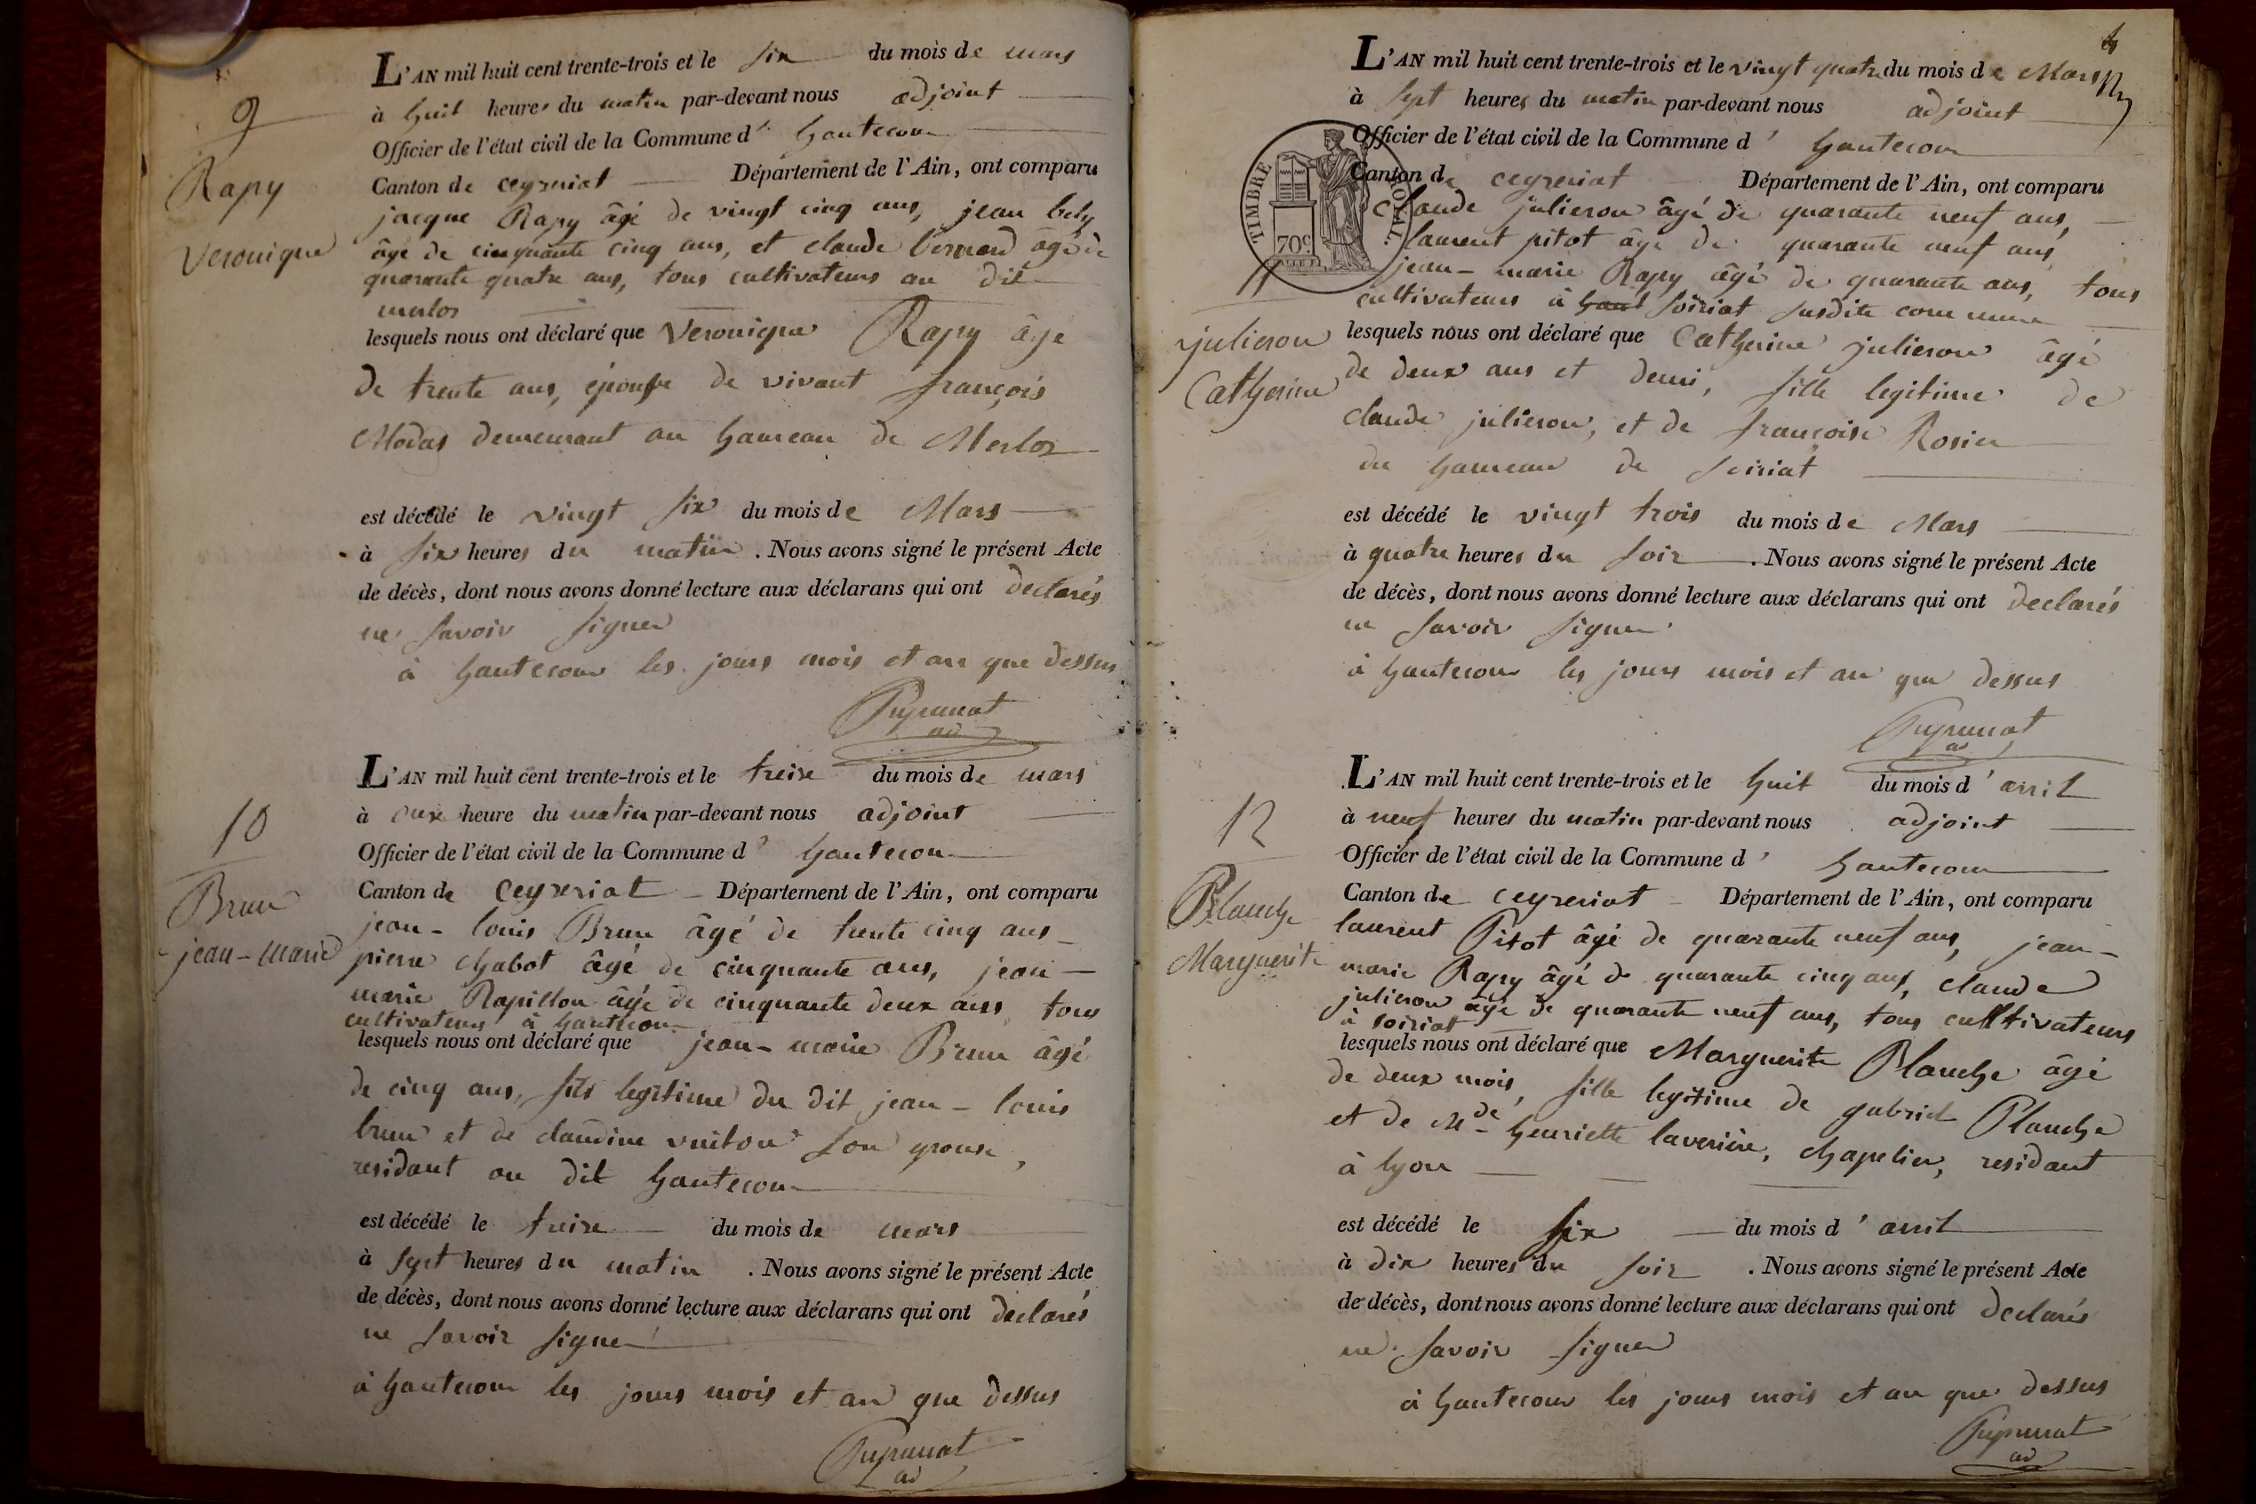 9
Rapy
Veronique
L'AN mil huit cent trente-trois et le six du mois de mars
à huit heures du matin par-devant nous adjoint
Officier de l'état civil de la Commune d' hautecour
Canton de ceyzeriat Département de l'Ain, ont comparu
jacque Rapy âgé de vingt cinq ans, jean bely
âgé de cinquante cinq ans, et claude bernard âgé de
quarante quatre ans, tous cultivateurs au dit
merlos
lesquels nous ont déclaré que Veronique Rapy âgé
de trente ans, épouse de vivant françois
Modas demeurant au hameau de Merloz
est décédé le vingt six du mois de Mars
à six heures du matin . Nous avons signé le présent Acte
de décès, dont nous avons donné lecture aux déclarans qui ont declarés
ne savoir signer
à hautecour les jours mois et an que dessus
ad
10
Brun
jean-marie
L'AN mil huit cent trente-trois et le treize du mois de mars
à onze heure du matin par-devant nous adjoint
Officier de l'état civil de la Commune d' hautecour
Canton de ceyzeriat Département de l'Ain, ont comparu
jean-louis Brun âgé de trente cinq ans
pierre chabot âgé de cinquante ans, jean-
marie Rapillon âgé de cinquante deux ans tous
cultivateurs à hautecour
lesquels nous ont déclaré que jean-marie Brun âgé
de cinq ans, fils legitime du dit jean-louis
brun et de claudine vuiton son epouse,
residant au dit hautecour
est décédé le treize du mois de mars
à sept heures du matin . Nous avons signé le présent Acte
de décès, dont nous avons donné lecture aux déclarans qui ont declarés
ne savoir signer
à hautecour les jours mois et an que dessus
ad
TIMBRE ROYAL.
70c
11
julieron
Catherine
L'AN mil huit cent trente-trois et le vingt quatre du mois de Mars
à sept heures du matin par-devant nous adjoint
Officier de l'état civil de la Commune d' hautecour
Canton de ceyzeriat Département de l'Ain, ont comparu
claude julieron âgé de quarante neuf ans,
laurent pitot âgé de quarante neuf ans,
jean-marie Rapy âgé de quarante ans, tous
cultivateurs à haut soiriat susdite commune
lesquels nous ont déclaré que Catherine julieron âgé
de deux ans et demi, fille legitime de
claude julieron, et de françoise Rosier
du hameau de soiriat
est décédé le vingt trois du mois de Mars
à quatre heures du soir . Nous avons signé le présent Acte
de décès, dont nous avons donné lecture aux déclarans qui ont declarés
ne savoir signer
à hautecour les jours mois et an que dessus
ad
12
Planche
Marguerite
L'AN mil huit cent trente-trois et le huit du mois d' avril
à neuf heures du matin par-devant nous adjoint
Officier de l'état civil de la Commune d' hautecour
Canton de ceyzeriat Département de l'Ain, ont comparu
laurent Pitot âgé de quarante neuf ans, jean-
marie Rapy âgé de quarante cinq ans, claude
julieron âgé de quarante neuf ans, tous cultivateurs
à soiriat
lesquels nous ont déclaré que Marguerite Planche âgé
de deux mois, fille legitime de gabriel Planche
et de Mde henriette laverière, chapelier, residant
à lyon
est décédé le six du mois d' avril
à dix heures du soir . Nous avons signé le présent Acte
de décès, dont nous avons donné lecture aux déclarans qui ont declarés
ne savoir signer
à hautecour les jours mois et an que dessus
ad